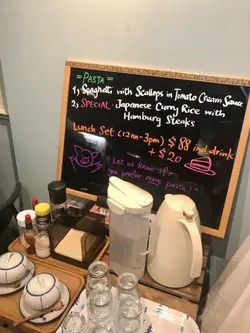 = PASTA =
1) Spaghetti with Scallops in Tomato Cream Sauce
2) SPECIAL: Japanese Curry Rice with
Hamburg Steaks
Lunch Set: (12nn-3pm) $88 incl. drink
+ $20
" Let us know if
you prefer more pasta! "